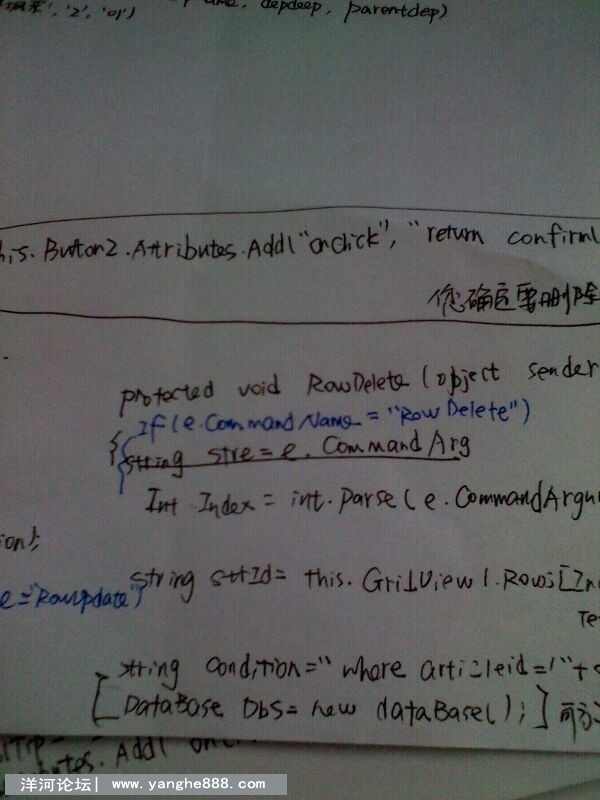 '2', '01') depdeep, parentdep)
his. Button2. Attributes. Add("onclick", "return confirm(
您确定要删除
protected void RowDelete (object sender
If (e.CommandName = "RowDelete")
{ string stre = e. CommandArg
Int Index = int. Parse (e. CommandArgu
ion);
string strId = this. GridView1. Rows[In
e="RowUpdate")
Te
string condition = " where articleid = '" +
[ DataBase Dbs = new dataBase(); ]
utes. Add( oncl
洋河论坛| www.yanghe888.com